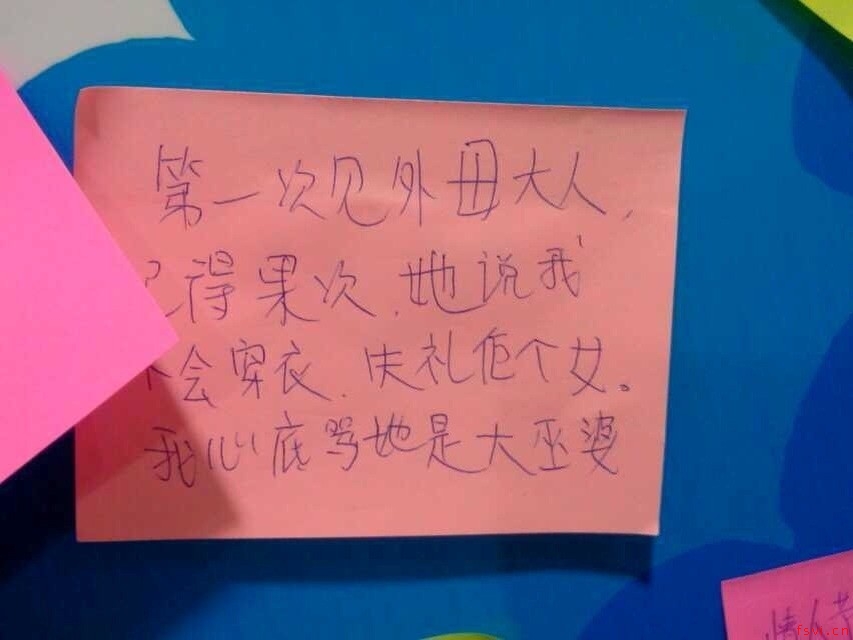 第一次见外母大人,
得果次,她说我
会穿衣,失礼佢个女。
我心底骂她是大巫婆
情人